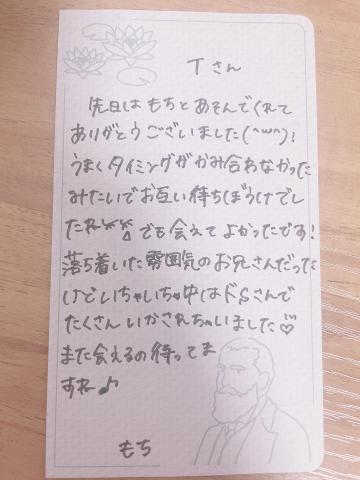 Tさん
先日はもちとあそんでくれて
ありがとうございました(^w^)!
うまくタイミングがかみ合わなかった
みたいでお互い待ちぼうけでし
たねでも会えてよかったです!
落ち着いた雰囲気のお兄さんだった
けどいちゃいちゃ中はドSさんで
たくさんいかされちゃいました♡
また会えるの待ってま
すね♪
もち